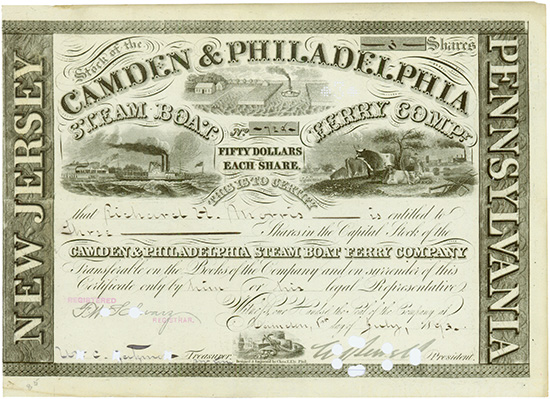 3 Shares
Stock of the
CAMDEN & PHILADELPHIA
STEAM BOAT FERRY COMPY
No
FIFTY DOLLARS
EACH SHARE.
THIS IS TO CERTIFY
NEW JERSEY
PENNSYLVANIA
that Richard H. Morris is entitled to
Three Shares in the Capital Stock of the
CAMDEN & PHILADELPHIA STEAM BOAT FERRY COMPANY
Transferable on the Books of the Company and on surrender of this
Certificate only by him or his legal Representative
REGISTERED
REGISTRAR.
Witness our Hands and the Seal of the Company at
Camden day of July 189
Treasurer. President.